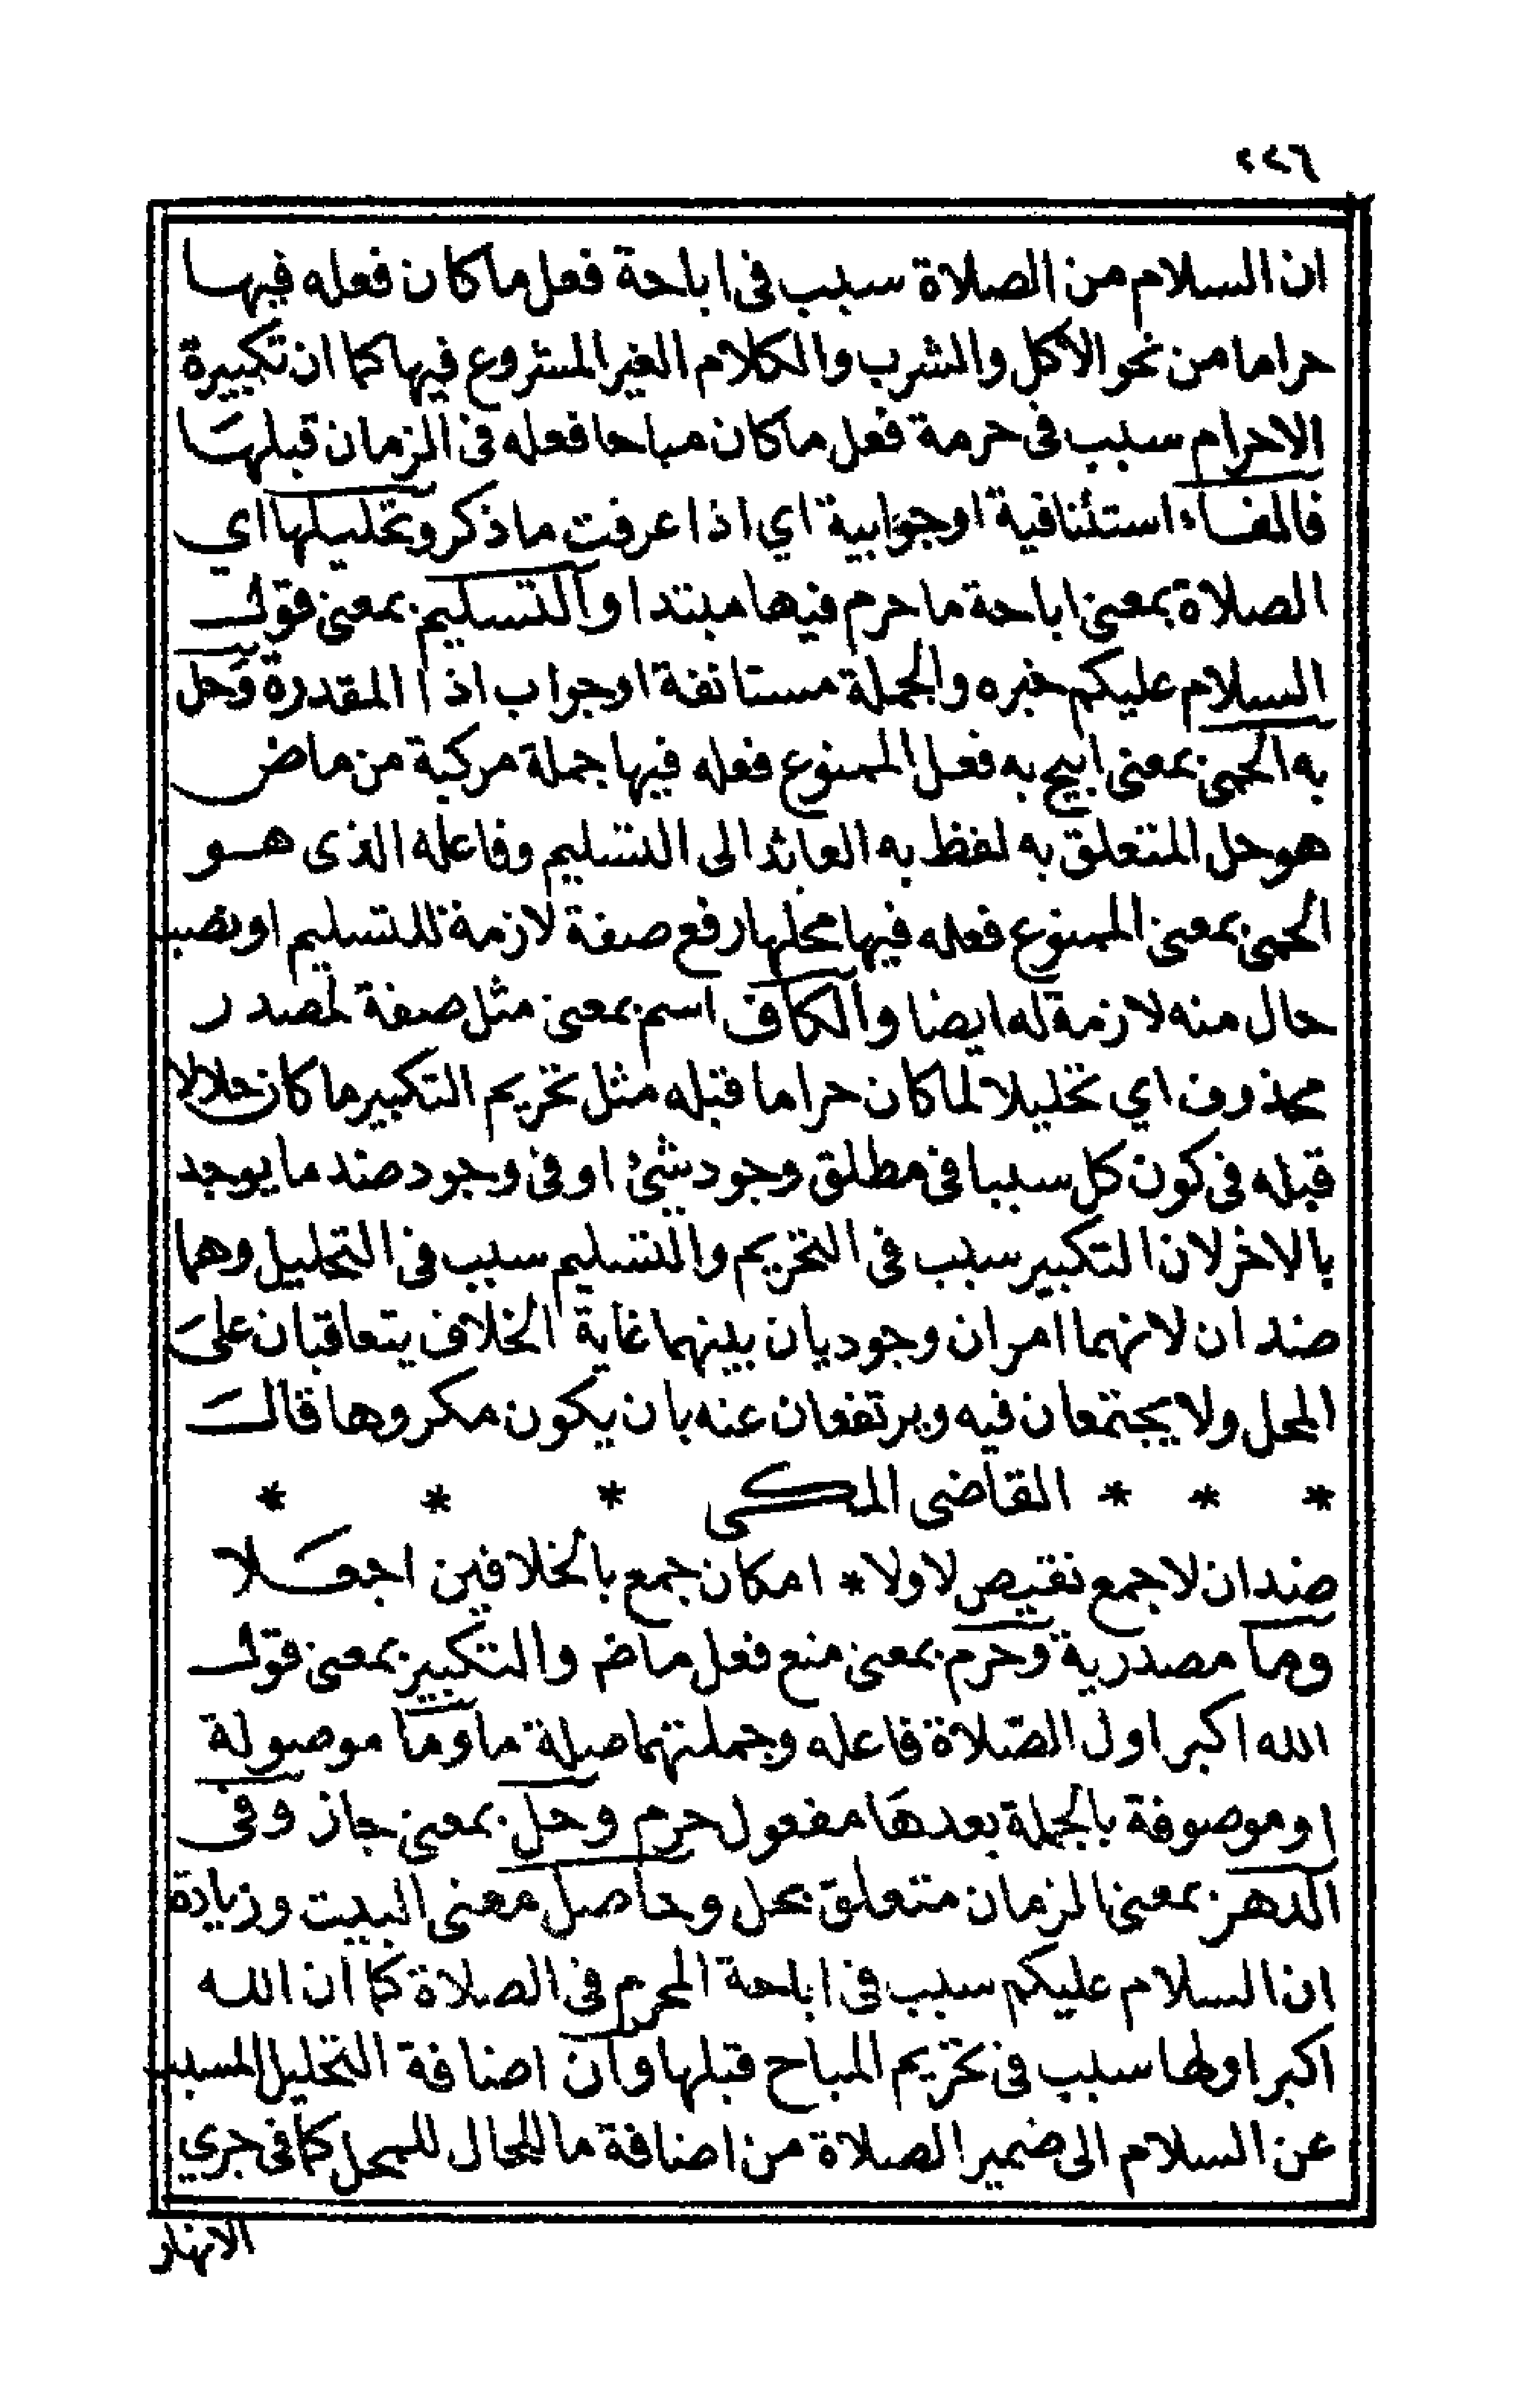 ٢٢٦
ان السلام من الصلاة سبب فى اباحة فعل ما كان فعله فيها
حراما من نحو الأكل والشرب والكلام الغير المشروع فيها كما ان تكبيرة
الاحرام سبب فى حرمة فعل ما كان مباحا فعله فى الزمان قبلها
فالفاء استئنافية او جوابية اي اذا عرفت ما ذكر وتحليلها اي
الصلاة بمعنى اباحة ما حرم فيها مبتدا والتسليم بمعنى قول
السلام عليكم خبره والجملة مستانفة او جواب اذا المقدرة وحل
به الحمى بمعنى ابيح به فعل الممنوع فعله فيها جملة مركبة من ماض
هو حل المتعلق به لفظ به العائد الى التسليم وفاعله الذى هو
الحمى بمعنى الممنوع فعله فيها محلها رفع صفة لازمة للتسليم او نصب
حال منه لازمة له ايضا والكاف اسم بمعنى مثل صفة لمصدر
محذوف اي تحليلا لما كان حراما قبله مثل تحريم التكبير ما كان حلالا
قبله فى كون كل سببا فى مطلق وجود شئ او فى وجود ضد ما يوجد
بالاخر لان التكبير سبب فى التحريم والتسليم سبب فى التحليل وهما
ضدان لانهما امران وجوديان بينهما غاية الخلاف يتعاقبان على
المحل ولا يجتمعان فيه ويرتفعان عنه بان يكون مكروها قال
* * * القاضى المكى * * *
ضدان لا جمع نقيض لا ولا * امكان جمع بالخلافين اجعلا
وما مصدرية وحرم بمعنى منع فعل ماض والتكبير بمعنى قول
الله اكبر اول الصلاة فاعله وجملتهما صلة ما وما موصولة
او موصوفة بالجملة بعدها مفعول حرم وحل بمعنى جاز وفى
الدهر بمعنى الزمان متعلق بحل وحاصل معنى البيت وزيادة
ان السلام عليكم سبب فى اباحة المحرم فى الصلاة كما ان الله
اكبر اولها سبب فى تحريم المباح قبلها وان اضافة التحليل المسبب
عن السلام الى ضمير الصلاة من اضافة ما للحال للمحل كما فى جري
الانهار